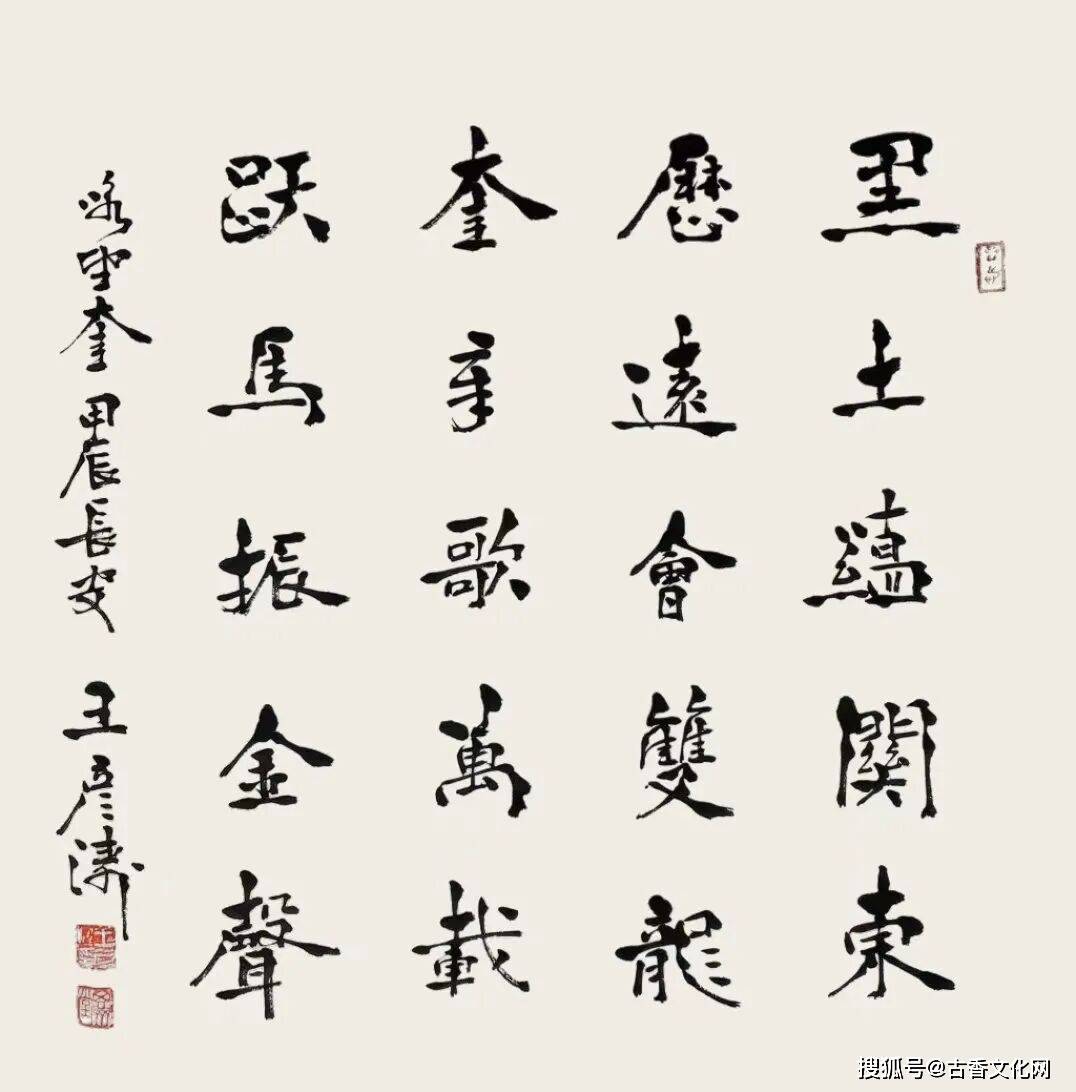 黑土蘊關東
歷遠會雙龍
奎歌萬載
跃馬振金聲
咏望奎 甲辰 長安 王彥濤
搜狐号@古香文化网